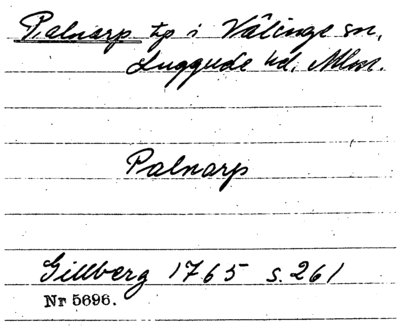 Palnarp tp i Välinge sn,
Luggude hd. Mlm.
Palnarp
Gillberg 1765 s. 261
Nr 5696.